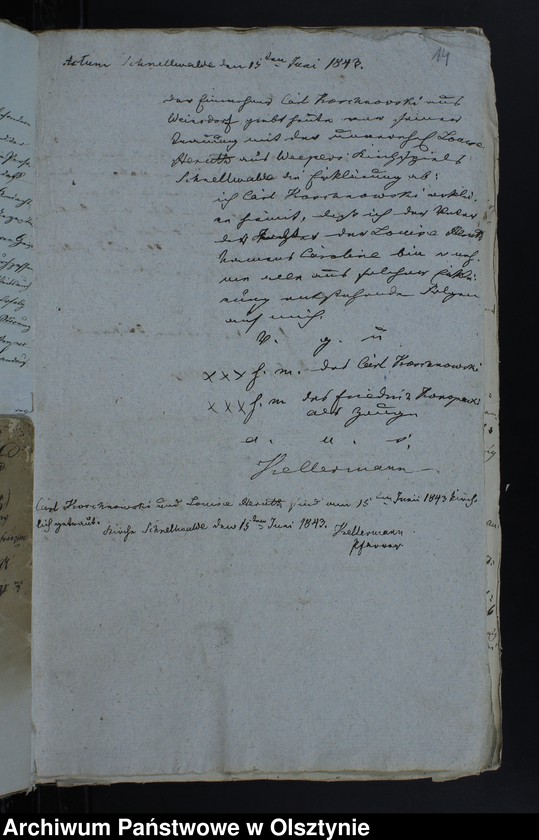 14
Actum Schnellwalde den 15ten Juni 1843.
Der Einwohner Carl Korschnowski aus
Weinsdorf giebt heute vor seiner
Trauung mit der unverehel. Louise
Heruth aus Weepers Kirchspiels
Schnellwalde die Erklärung ab:
ich Carl Korschnowski erklä-
re hiemit, daß ich der Vater
der Tochter der Louise Heruth
Namens Caroline bin u neh-
me alle aus solcher Erklä-
rung entstehende Folgen
auf mich.
V. g. u
XXX h. m. des Carl Korschnowski
XXX h. m. des Friedrich
als Zeuge
a. u. s.
Kellermann
Carl Korschnowski und Louise Heruth sind am 15ten Juni 1843 kirch-
lich getraut.
Kirche Schnellwalde den 15ten Juni 1843. Kellermann
Pfarrer
Archiwum Państwowe w Olsztynie